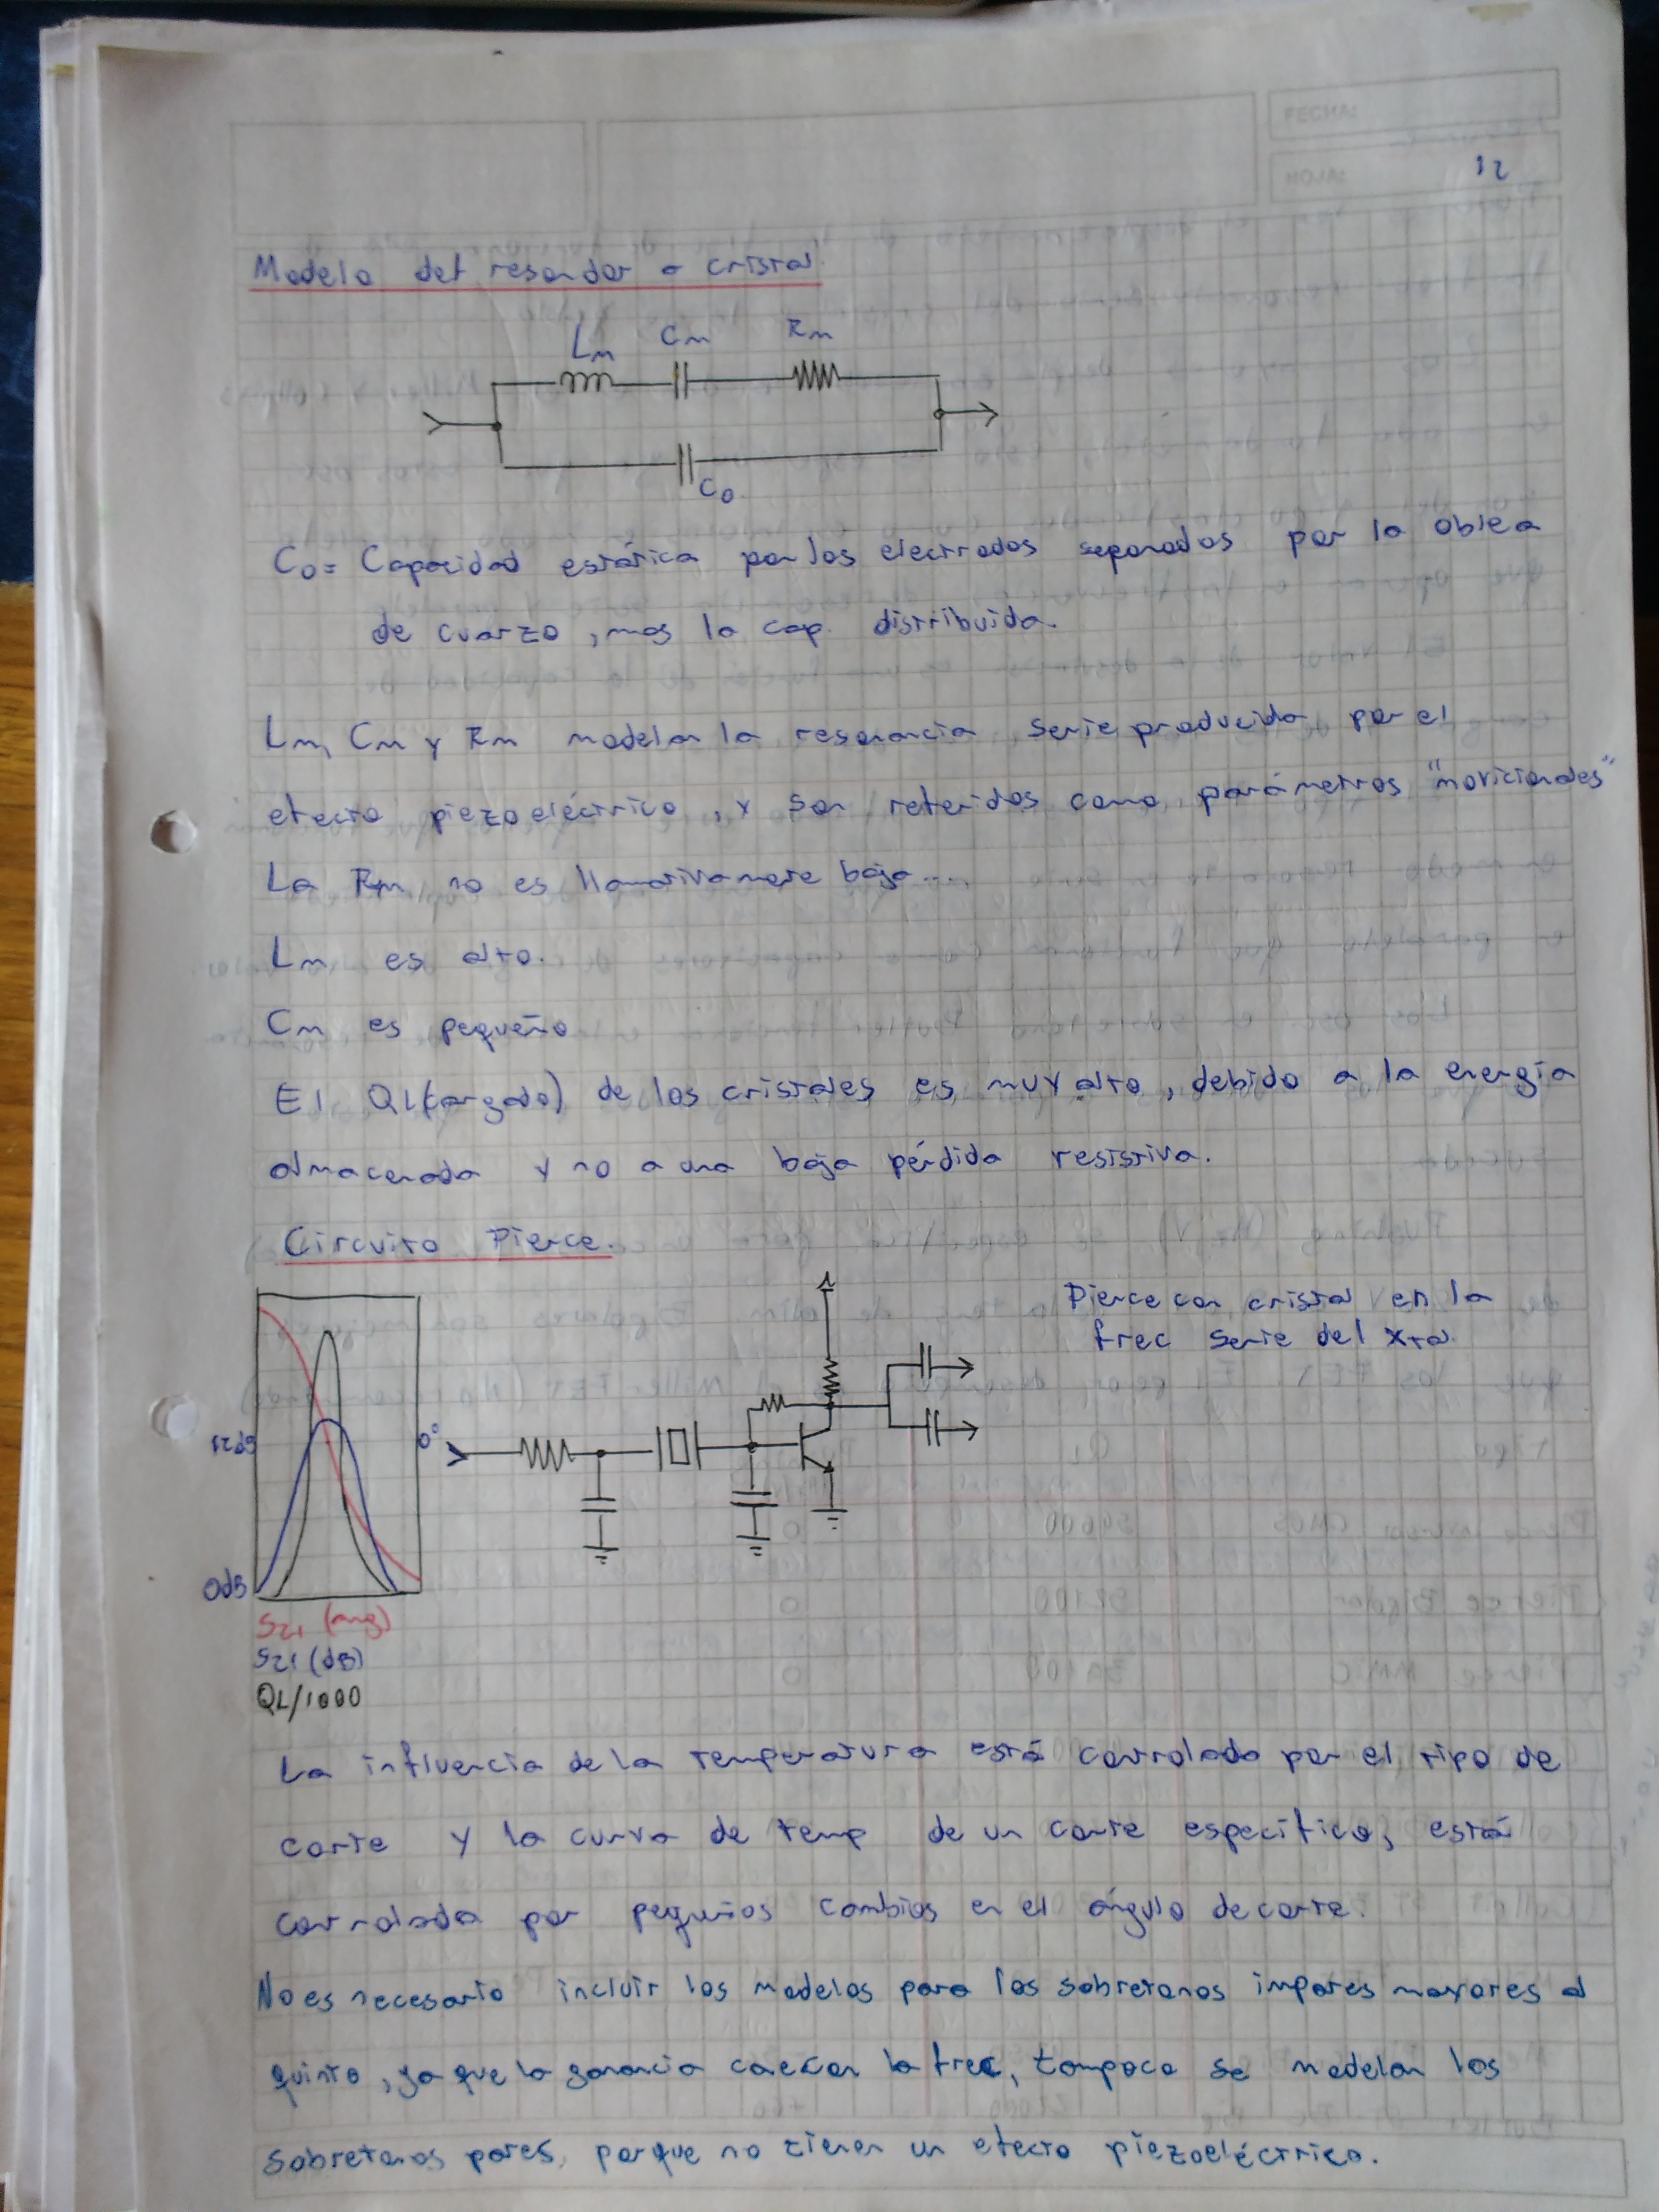 FECHA:
HOJA: 12
Modelo del resonador a cristal
Lm Cm Rm
Co
Co= Capacidad estática por los electrodos separados por la oblea
de cuarzo, mas la cap. distribuida.
Lm, Cm y Rm modelan la resonancia serie producida por el
efecto piezoeléctrico, y son referidos como parámetros "mocionales"
La Rm no es llamativamente baja...
Lm es alto.
Cm es pequeño
El QL(cargado) de los cristales es muy alto, debido a la energía
almacenada y no a una baja pérdida resistiva.
Circuito Pierce.
Pierce con cristal en la
frec serie del Xtal.
12dB
0°
0dB
S21 (ang)
S21 (dB)
QL/1000
La influencia de la temperatura está controlada por el tipo de
corte y la curva de temp de un corte específico, está
controlada por pequeños cambios en el ángulo de corte.
No es necesario incluir los modelos para los sobretonos impares mayores al
quinto, ya que la ganancia cae con la frec, tampoco se modelan los
sobretonos pares, porque no tienen un efecto piezoeléctrico.